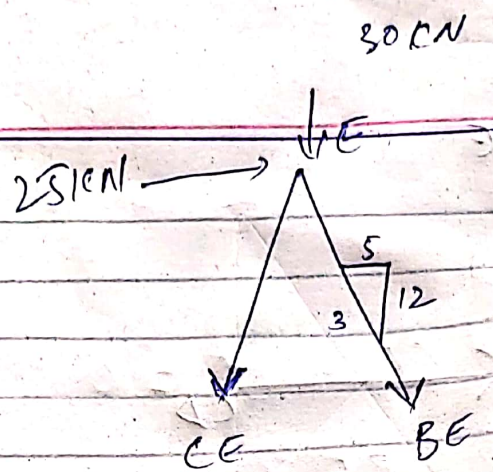 30 KN
E
25KN
5
12
3
CE
BE